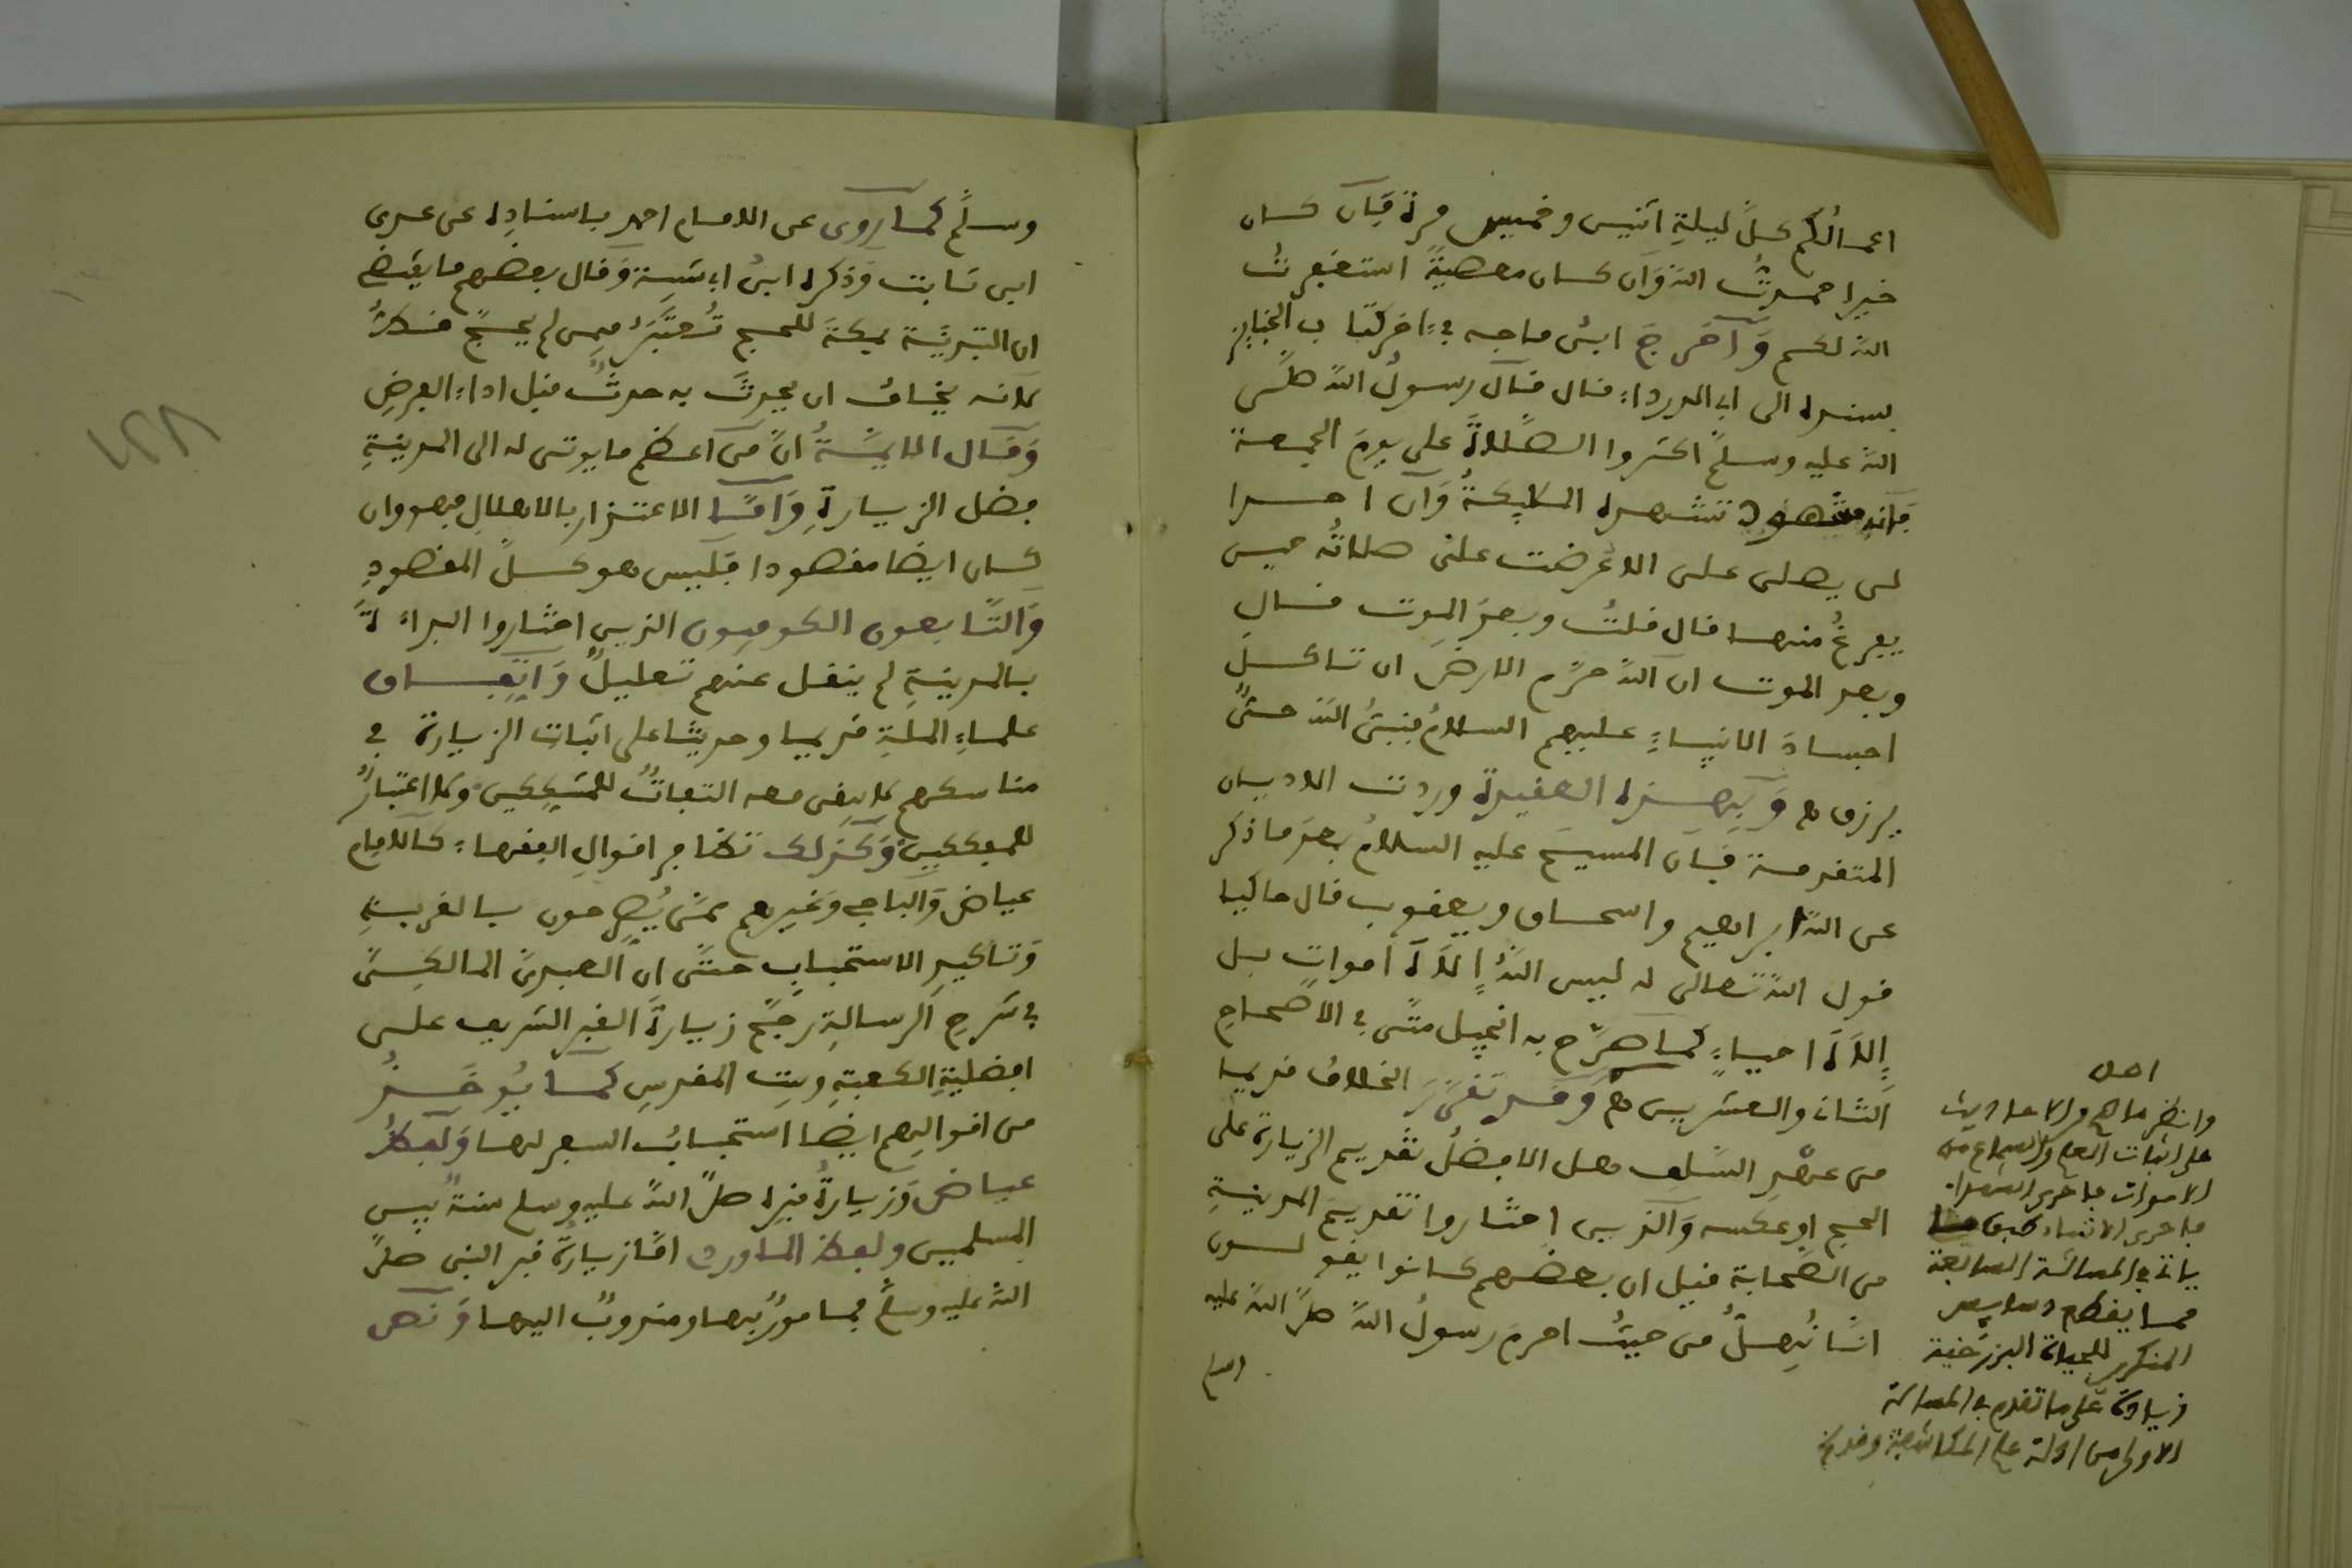 اعمالكم كلّ ليلة اثنين وخميس مرة فإن كان
خيرا حمدتُ الله وإن كان معصيةً استغفرت
الله لكم وأخرج ابن ماجه في اخر كتاب الجنايز
بسنده الى ابي الدرداء قال قال رسول الله صلّى
الله عليه وسلّم اكثروا الصلاة علي يوم الجمعة
فإنه مشهود تشهده الملايكةُ وإن احدا
لن يصلى على الا عُرضت علىّ صلاتُه حين
يفرغُ منها قال قلتُ وبعد الموت قال
وبعد الموت ان الله حرّم الارض ان تاكل
اجساد الانبياءِ عليهم السلامُ فنبىُّ الله حىٌّ
يرزق ه وبهذه العقيدة وردت الاديان
المتقدمة فإن المسيح عليه السلام بعد ما ذكر
عن الله ابراهيم واسحاق ويعقوب قال حاكيا
قول الله تعالى له ليس الله إلاهَ أمواتٍ بل
إلاهَ احياءٍ كما صرّح به انجيل متّى في الاصحاح
الثانى والعشرين ه وقد تقرّر الخلاف قديما
من عصرِ السّلف هل الافضلُ تقديم الزيارة على
الحج او عكسه والذين اختاروا تقديم المدينة
من الصّحابة قيل ان بعضهم كانوا يقولون
انّا نُهلُّ من حيثُ احرم رسولُ الله صلّى الله عليه
وسلم
اهل
وانظر ما هو الاحاديث
على اثبات العلم والسماع من
الاموات
ياتى في المسالة السابعة
مما يفطم
المنكر للحياة البرزخية
زيادة على ما تقدم في المسالة
الاولى من ادلة على المكاشفة
وسلّم كما روى عن الامام احمد باسناده عن عدى
ابن ثابت وذكره ابنُ ابي شيبة وقال بعضهم ما يقتضى
ان التبدئية بمكةَ للحج تُعتبَرُ فيمن لم يحجّ فكلُّ
لانه يخاف ان يحدث به حدثٌ قبل اداءِ الفرضِ
وقال الايمّةُ انّ من اعظم ما يوتى له الى المدينةِ
فضل الزيارةِ وأمّا الاعتذار بالاهلال فهو وان
كان ايضا مقصودا فليس هو كلّ المقصود
والتّابعون الكوفيون الذين اختاروا البداءَةَ
بالمدينةِ لم ينقل عنهم تعليلٌ واتّفاق
علماءِ الملةِ قديما وحديثا على اثبات الزيارة في
مناسكهم لا يبقى معه التفاتٌ للمشككين ولا اعتبارٌ
للمفككين وكذلك تظافر اقوال الفقهاء كالامام
عياض والباجى وغيرهم ممّن يُصرّحون بالقربيةِ
وتاكيدِ الاستحباب حتّى انّ العبدىّ المالكىّ
في شرح الرسالةِ رجّح زيارةَ القبر الشريف على
افضليةِ الكعبةِ وبيت المقدس كما يُوخذُ
من اقوالهم ايضا استحبابُ السفر لها ولفظُ
عياض وزيارةُ قبره صلّى الله عليه وسلم سنةٌ بين
المسلمين ولفظ الماوردى امّا زيارةُ قبر النبى صلّى
الله عليه وسلّم فمامورٌ بها ومندوبٌ اليها ونصّ